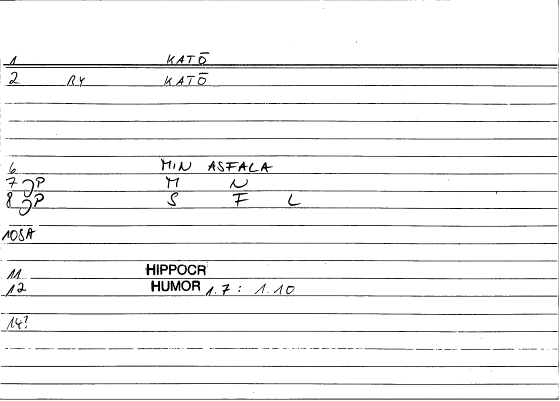 1 KATŌ
2 RY KATŌ
6 MIN ASFALA
7 P M N
8 P S F L
10SA
11 HIPPOCR
12 HUMOR 1.7: 1.10
14?